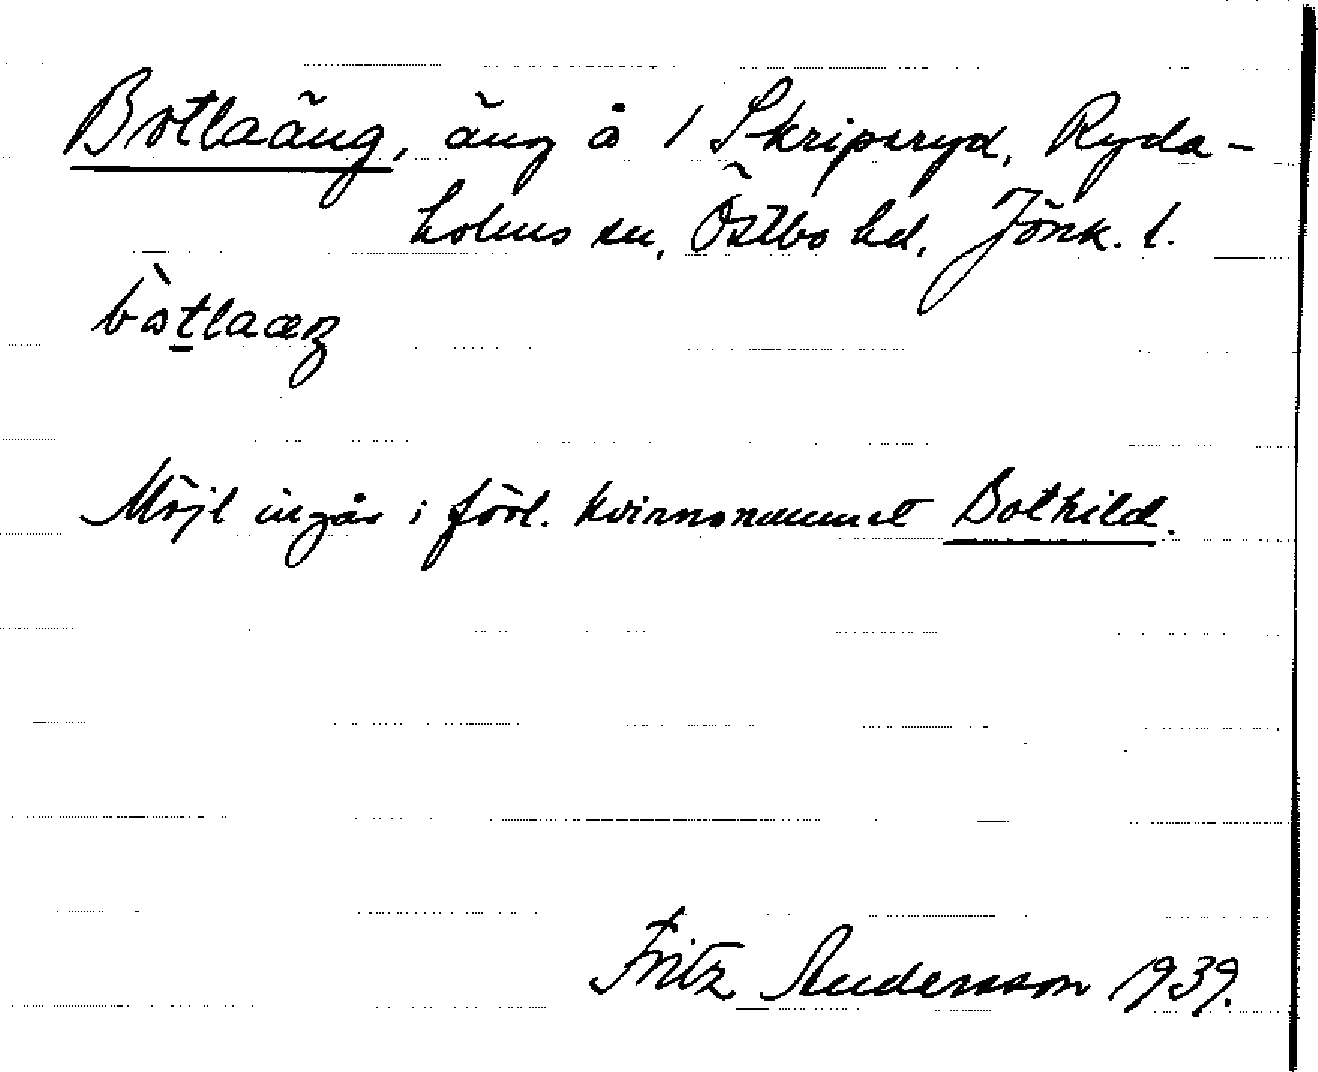 Botlaäng, äng å 1 Skripsryd, Ryda-
holms sn, Östbo hd, Jönk. l.
Möjl ingår i förl. kvinnonamnet Bothild.
Fritz Andersson 1939.